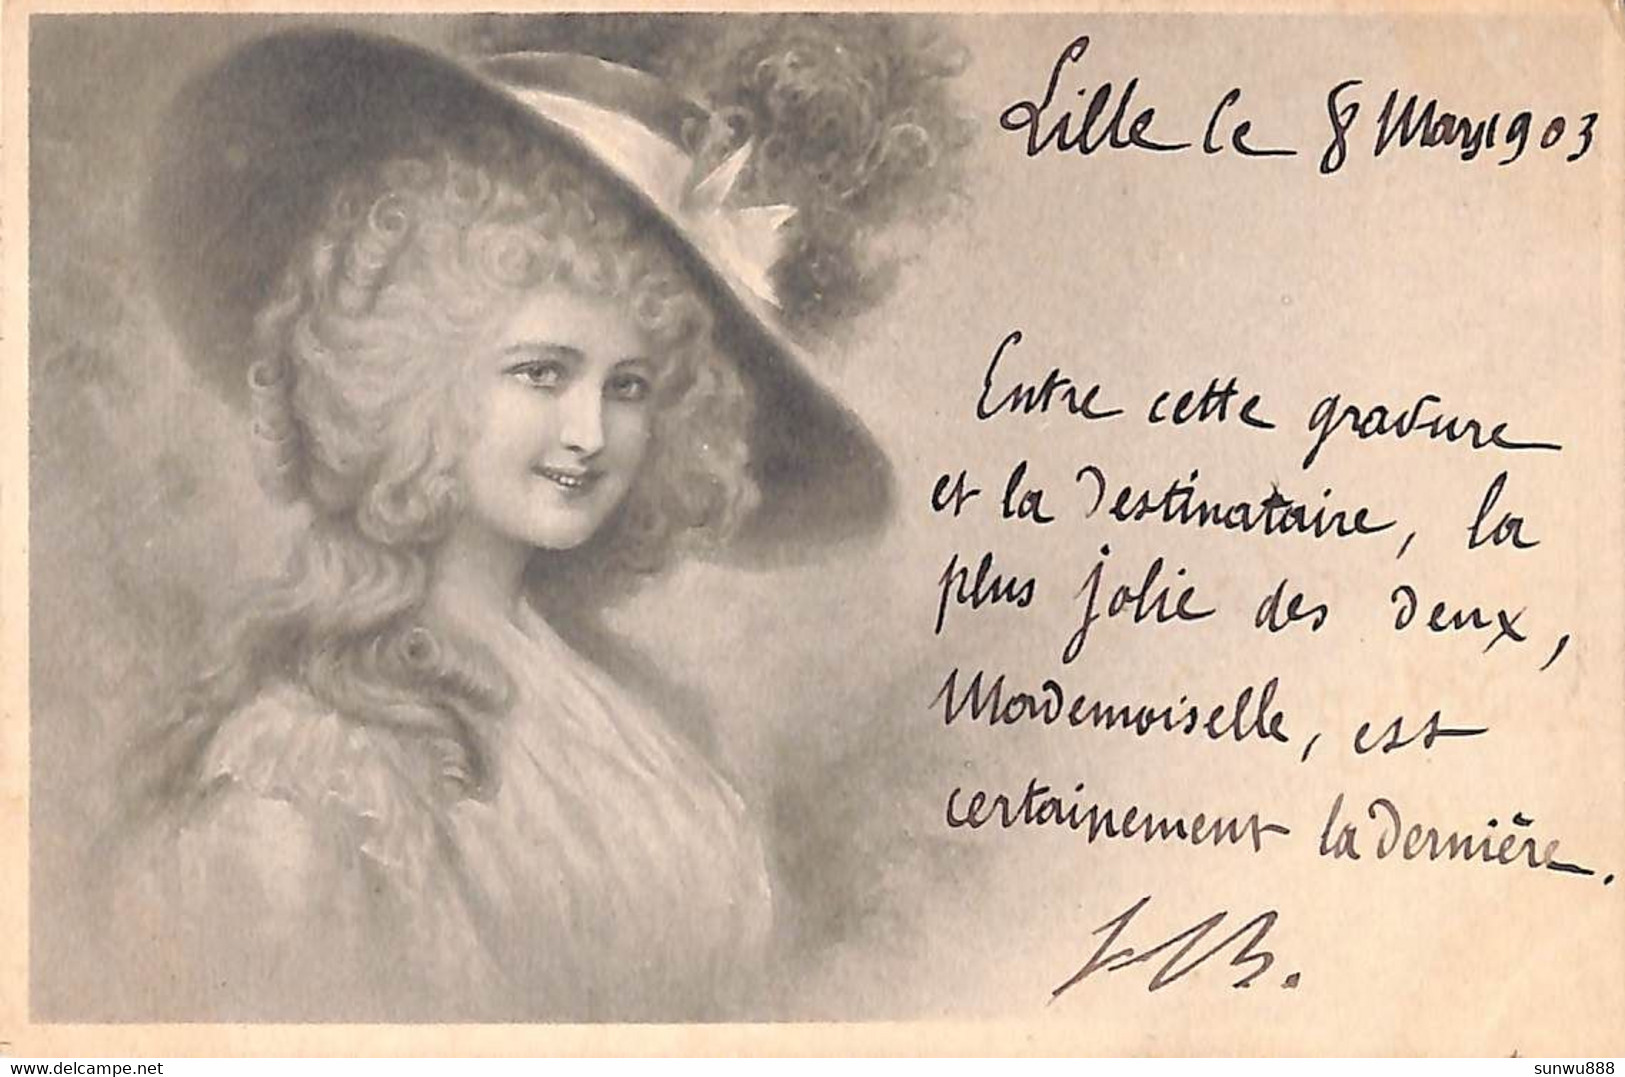 Lille le 8 Mars 1903
Entre cette gravure
et la destinataire, la
plus jolie des deux,
Mademoiselle, est
certainement la dernière.
Website : delcampe.net
sunwu888